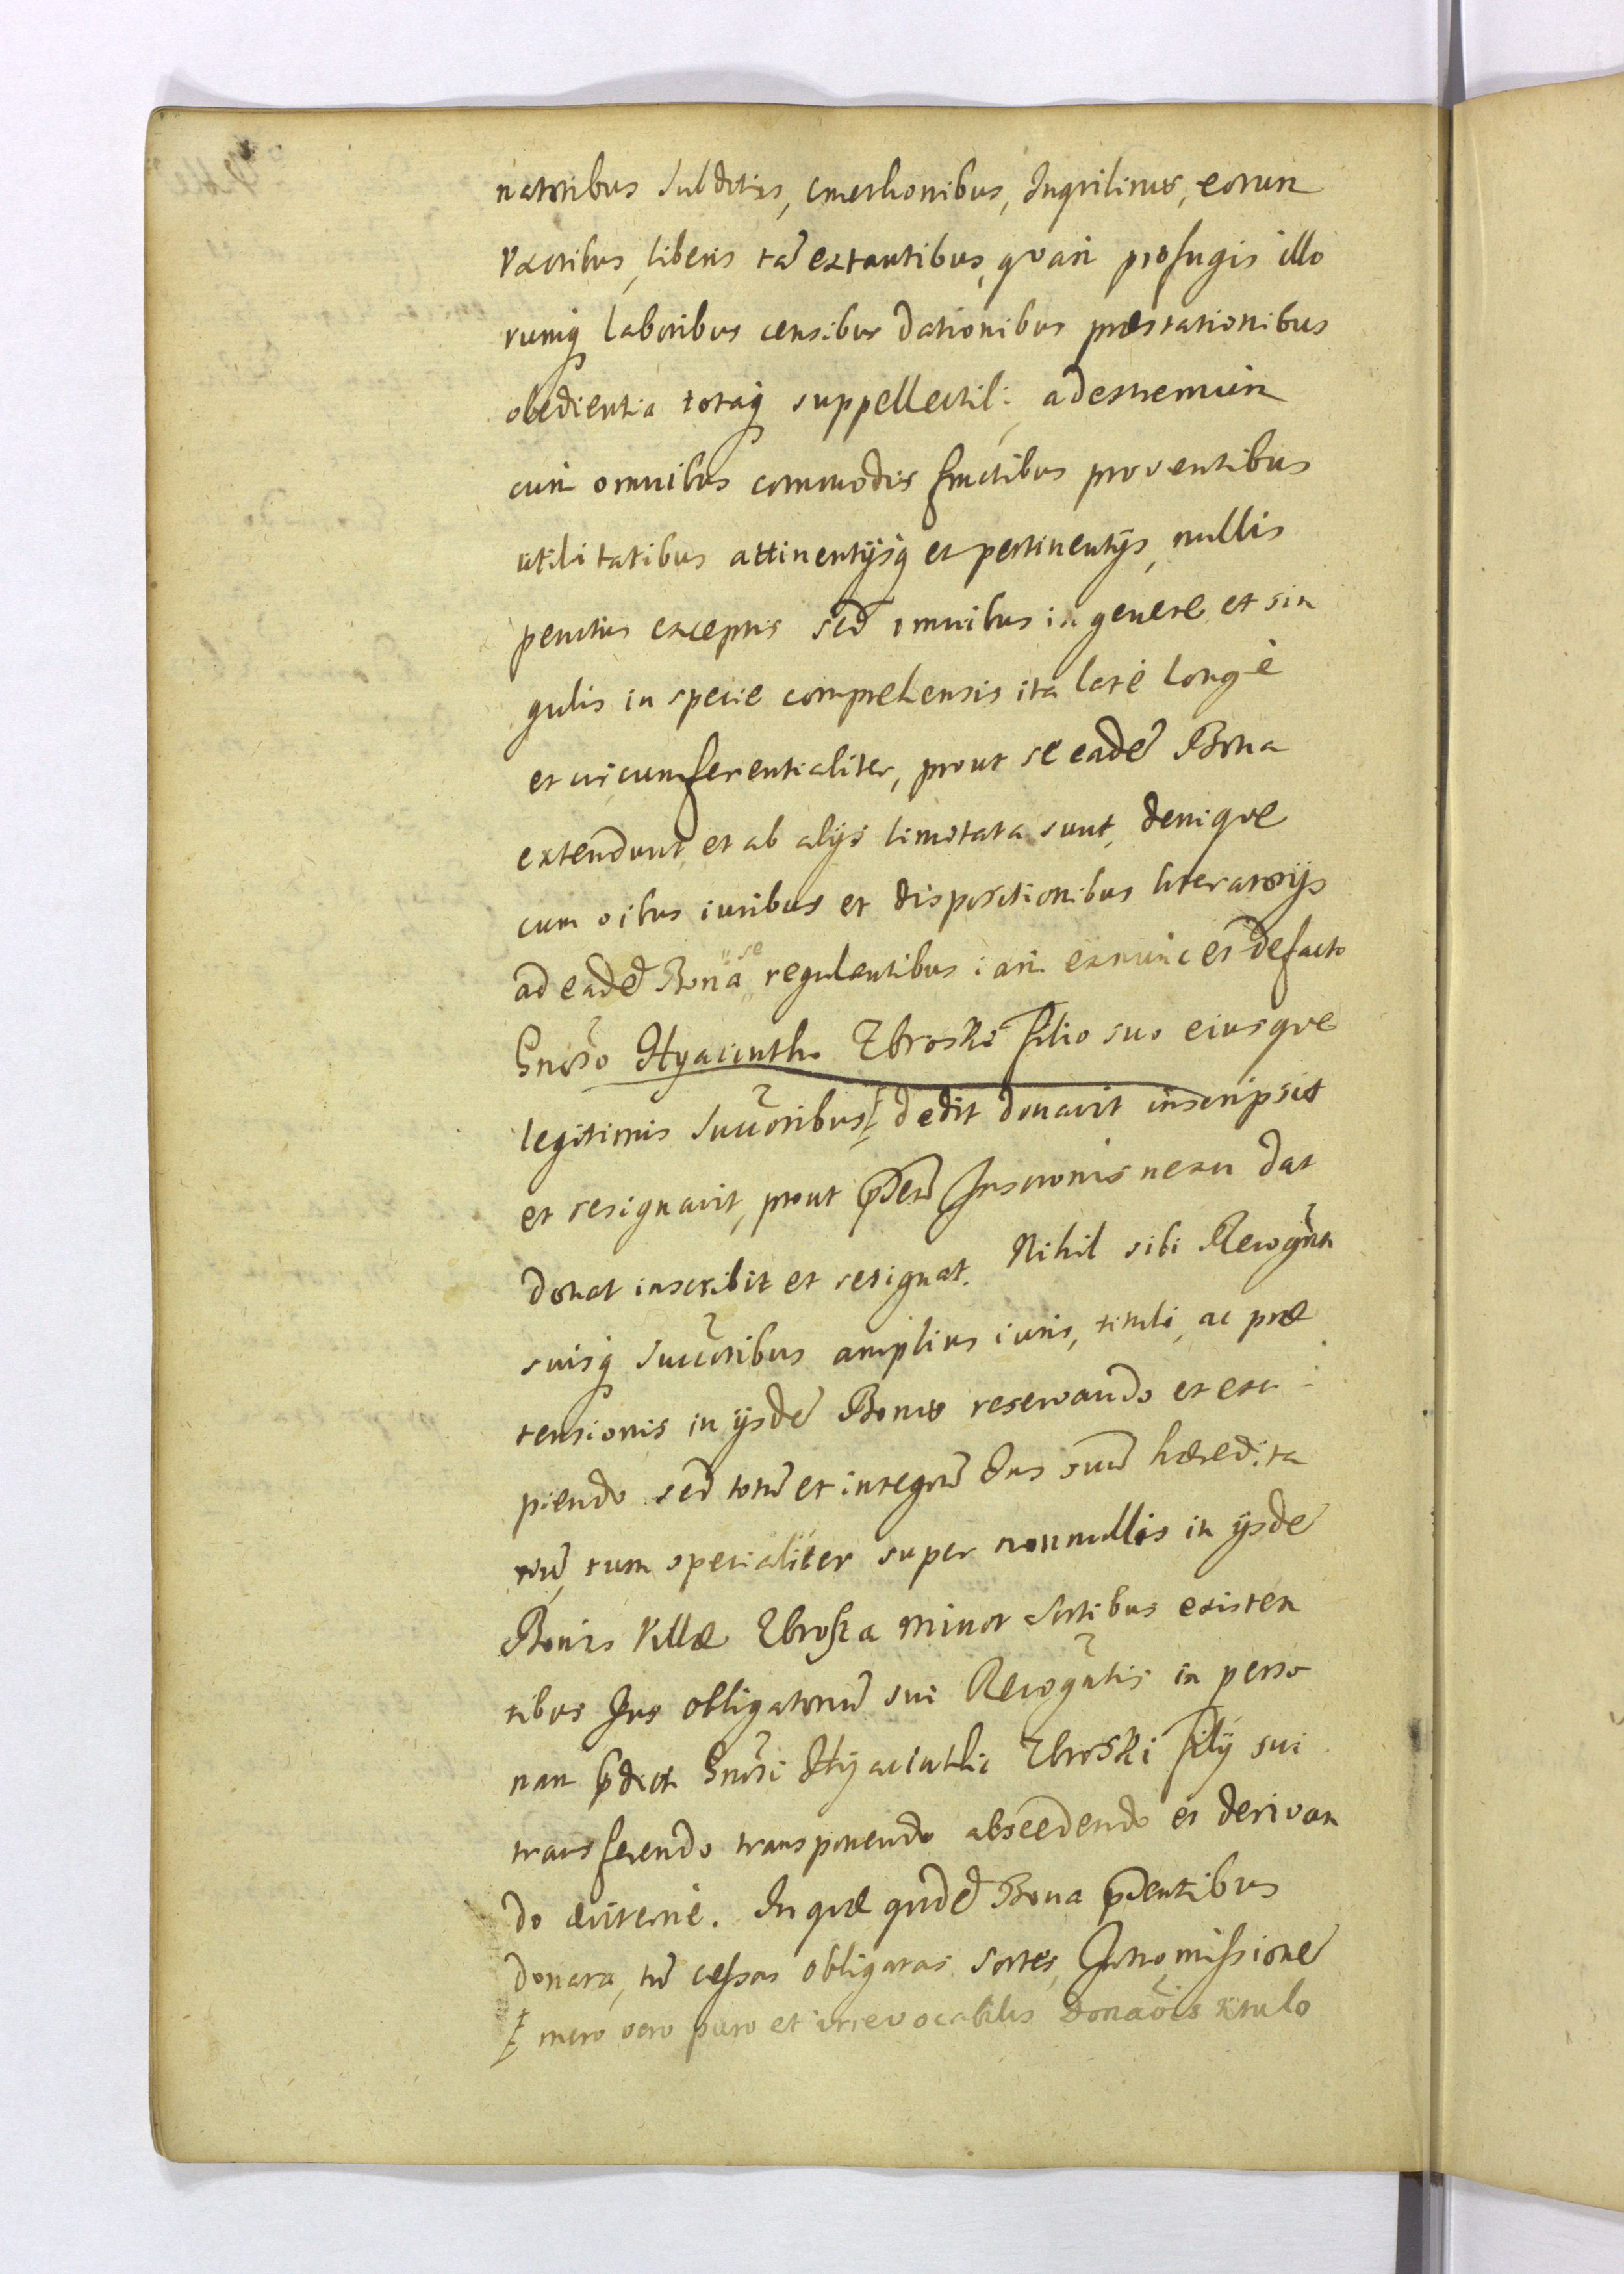 natoribus Subditis, cmethonibus, Inquilinis, eorum
Uxoribus, liberis tã extantibus, quàm profugis illo
rumq laboribus censibus dationibus præstationibus
obedientia totaq suppellectili, ad extremum
cum omnibus commodis fructibus proventibus
utilitatibus attinentijsq et pertinentijs, nullis
penitus exceptis sed omnibus in genere et sin
gulis in specie comprehensis ita latè longè
et circumferentialiter, prout se eadẽ Bona
extendunt, et ab alijs limitata sunt, denique
cum oibus iuribus et dispositionibus literatorijs
ad eadẽ Bona se regulantibus iam exnunc et defacto
Gnoso Hyacintho Zbroski filio suo eiusque
legitimis Succoribus dedit donavit inscripsit
et resignavit, prout pñtiũ Inscrionis nexu dat
donat inscribit et resignat. Nihil sibi Recogñti
suisq Succoribus amplius iuris, tituli, ac præ
tensionis in ijsdẽ Bonis reservando et exci
piendo sed totũ et integrũ Ius suũ hæredita
riũ, tum specialiter super nonnullis in ijsdẽ
Bonis Villæ Zbroska Minor Sortibus existen
tibus Jus obligatoriũ sui Recogñtis in perso
nam pdict Gnosi Hyacinthi Zbroski filij sui
transferendo transponendo abscedendo et derivan
do æviternè. In quæ quidẽ Bona pdentibus
donata, tũ cessas obligatas Sortes, Intromissionẽ
mero vero puro et irrevocabilis Donaõis titulo